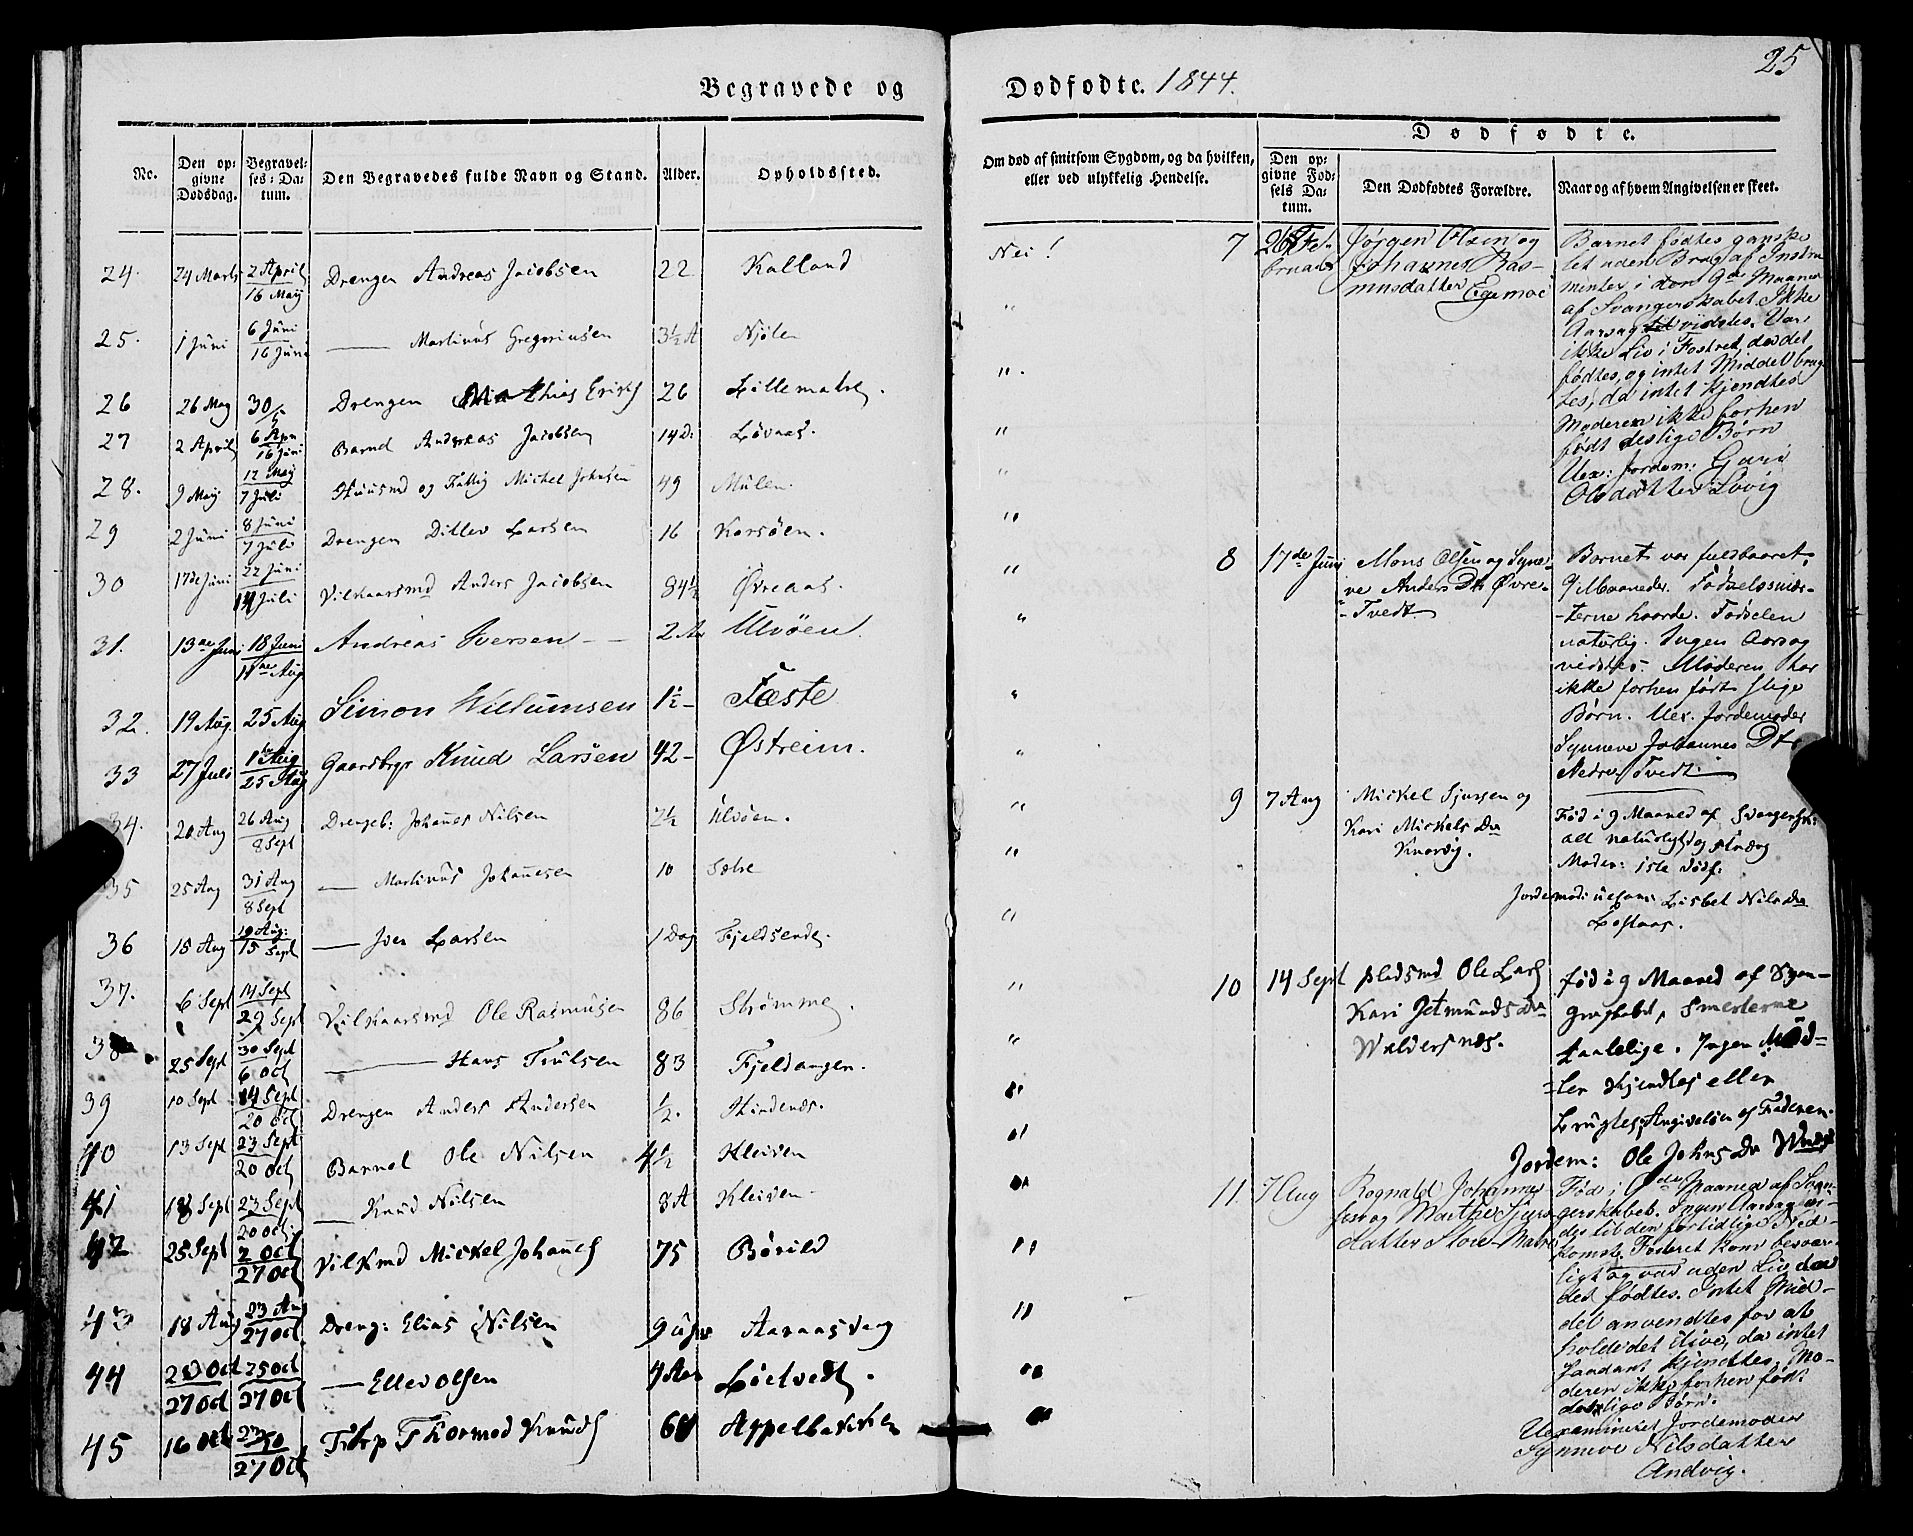 25
Begravede og Dødfødte. 1844.
No. Den opgivne Dødsdag. Begravelses-Datum. Den Begravedes fulde Navn og Stand. Alder. Opholdssted.
24. 24 Marts 2 April 16 Maij Drengen Andreas Jacobsen 22 Kalland
25. 1 Juni 6 Juni 16 Juni —— Martinus Gregoriusen 3½ A Njölen
26 26 May 30/5 Drengen Mathias Erichs 26 Lillematre.
27 2 April 6 Apr 16 Juni Barnet Andreas Jacobsen 14 D. Lövaas.
28. 9 Maij 12 Maij 7 Juli Huusmd og Fattig Mickel Johnsen 49 Mülen.
29 2 Juni 8 Juni 7 Juli Drengen Ditlev Larsen 16 Korsöen.
30 17de Juni 22 Juni 14 Juli Vilkaarsmd Anders Jacobsen 84½ Øvreaas.
31. 13de Juni 18 Juni 11te Aug Andreas Iversen — 2 Aar Ulvöen.
32. 19 Aug. 25 Aug Simon Willumsen 1½ - Fæste
33 27 Juli 1te Aug 25 Aug Gaardbrgr Knud Larsen 42 - Østreim.
34. 20 Aug 26 Aug 8 Sept Drengeb: Johannes Nilsen 2½ Ulvöen.
35 25 Aug 31 Aug 8 Sept —— Martinus Johannesen 10 Sætre
36 15 Aug 19 Aug: 15 Sept —— Iver Larsen 1 Dag Fjeldsende.
37. 6 Sept 14 Sept 29 Sept Vilkaarsmd Ole Rasmusen 86 Strömme.
38 25 Sept 30 Sept 6 Oct —— Hans Trulsen 83 Fjeldanger.
39 10 Sept 14 Sept 20 Oct Drengen Anders Andersen ½. Hindenæs.
40 13 Sept 23 Sept 20 Oct Barnet Ole Nilsen 4½ Kleiven
41 18 Sept 23 Sept 20 Oct. —— Knud Nilsen 8 A Kleiven.
42 25 Sept 2 Oct 27 Oct Vilkmd Mickel Johannes 75 Börild
43 18 Aug 23 Aug 27 Oct Dreng: Elias Nilsen 9 uger Aaraasvag
44 20 Oct 27 Oct 25 Oct 27 Oct —— Ellev Olsen 4 Aar Löitvedt.
45 16 Oct 27 Oct Thormod Knuds 60 Appelbakken
Om død af smitsom Sygdom, og da hvilken, eller ved ulykkelig Hendelse.
Nei!
Dødfødte.
Den opgivne Fødsels Datum. Den Dødfødtes Forældre. Naar og af hvem Angivelsen er skeet.
7 Februar Jörgen Olsen og
Johanne Rasmusdatter Egemoe
Barnet födtes ganske
let uden Brug af Instrumenter
i den 9de Maaned
af Svangerskabet. Ikke
Aarsag vidstes. Var
ikke Liv i Fostret, da det
födtes, og intet Middel brugtes,
da intet kjendtes
Moderen ikke forhen
födt deslige Börn
Uex: Jordem: Guri
Olsdatter Lovig
8 17de Juni Mons Olsen og Synneve
Anders Dtr Øvre-
Tvedt.
Barnet var fuldbaaret,
9 Maaneder. Födselssmærterne
haarde. Födselen
naturlig. Ingen Aarsag
vidstes. Moderen har
ikke forhen födt slige
Börn. Uex. Jordemoder
Synneve Johannes Dtr
Nedre Tvedt.
9 7 Aug Mickel Sjursen og
Kari Mickels Dr
Knarvig.
Föd i 9 Maaned af Svangersk:
alt naturligt og stræng
Moder: 1ste Födf:
Jordemodr uexam: Lisbet Nils Dr
10 14 Sept Pladsmd Ole Lars
Kari Jetmunds Dr
Waldersnæs.
föd i 9 Maaned af Svangerskabet,
Smerterne
taalelige. Ingen Midler
kjendtes eller
brugtes, Angivelsen af Faderen.
Jordem: Ole Johns Dr
11. 7 Aug Rognald Johannesen
og Marthe Sjursdatter
Store Matre
Föd i 9de Maaned af Svangerskabet.
Ingen Aarsag vides
til den fortidlige Nedkomst.
Fosteret kom besværligt
og var uden Liv da
det födtes. Intet Middel
anvendtes for at
holde det ilive, da intet
saadant kjendtes. Moderen
ikke forhen födt
deslige Börn.
Uexamineret Jordemoder
Synneve Nilsdatter
Andvig.